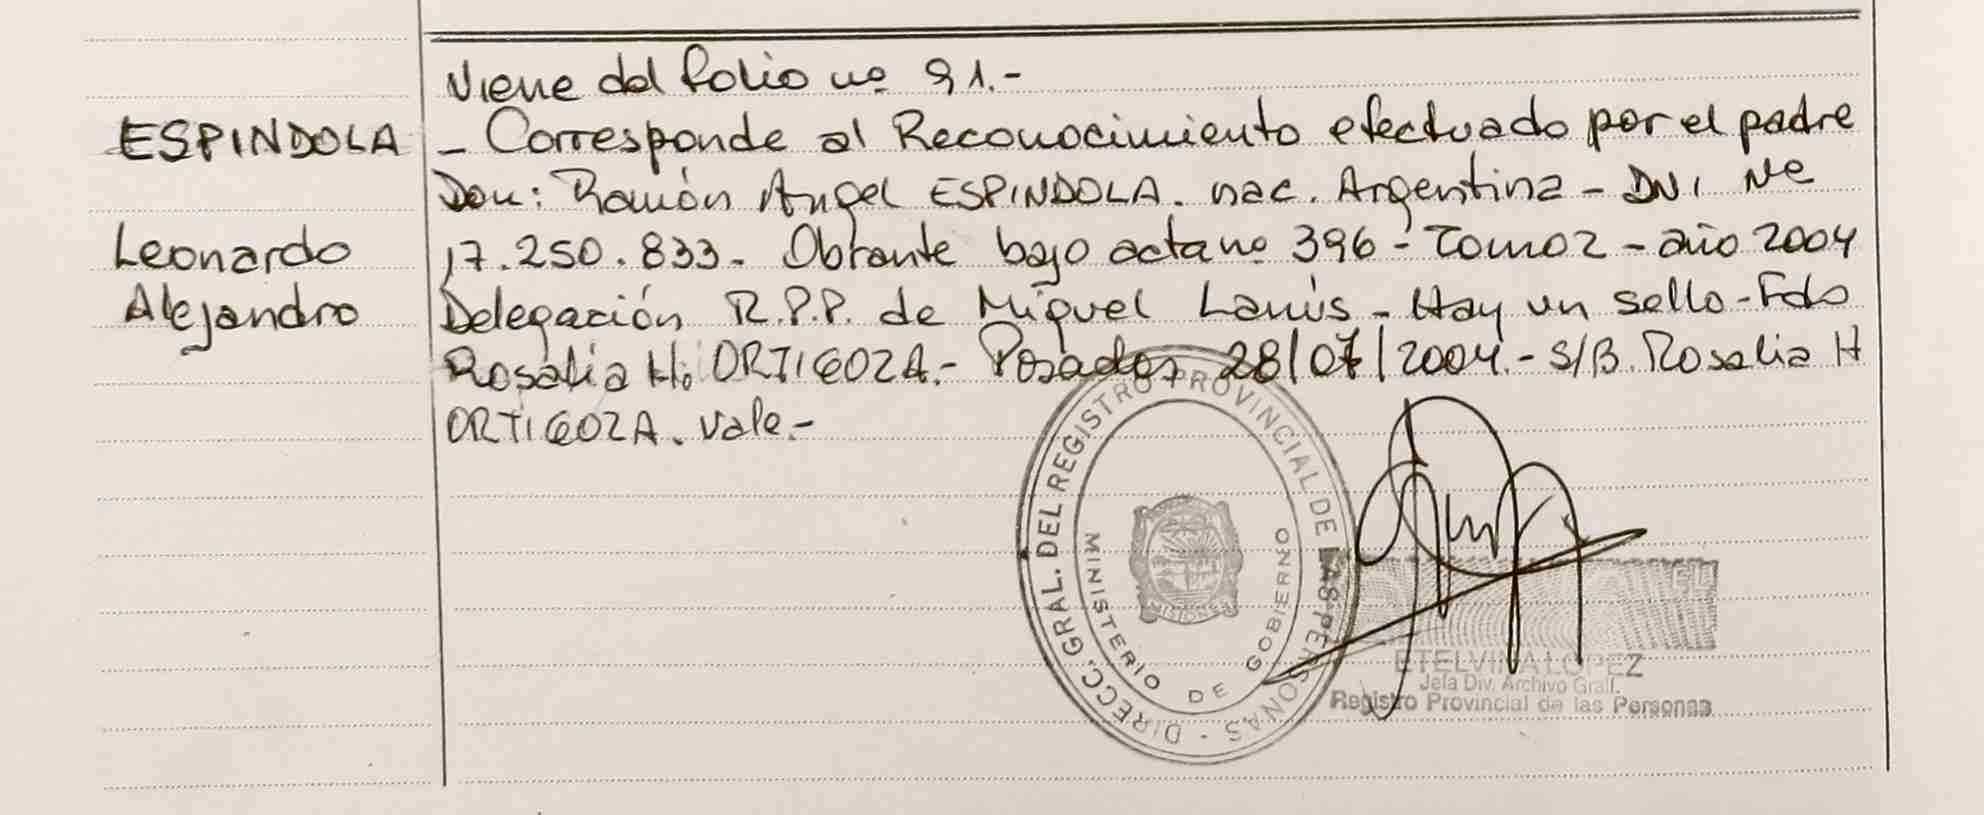 Viene del folio nº 91.-
ESPINDOLA
- Corresponde al Reconocimiento efectuado por el padre
Don: Ramón Angel ESPINDOLA. nac. Argentina - DNI Nº
Leonardo
17.250.833. Obrante bajo acta nº 396 - Tomo 2 - año 2004
Alejandro
Delegación R.P.P. de Miguel Lanús - Hay un sello - Fdo
Rosalia H. ORTIGOZA.- Posadas 28/07/2004.- S/B. Rosalia H
ORTIGOZA. Vale.-
DIRECC. GRAL. DEL REGISTRO PROVINCIAL DE LAS PERSONAS -
MINISTERIO DE GOBIERNO
MISIONES
ETELVINA LOPEZ
Jefa Div. Archivo Gral.
Registro Provincial de las Personas